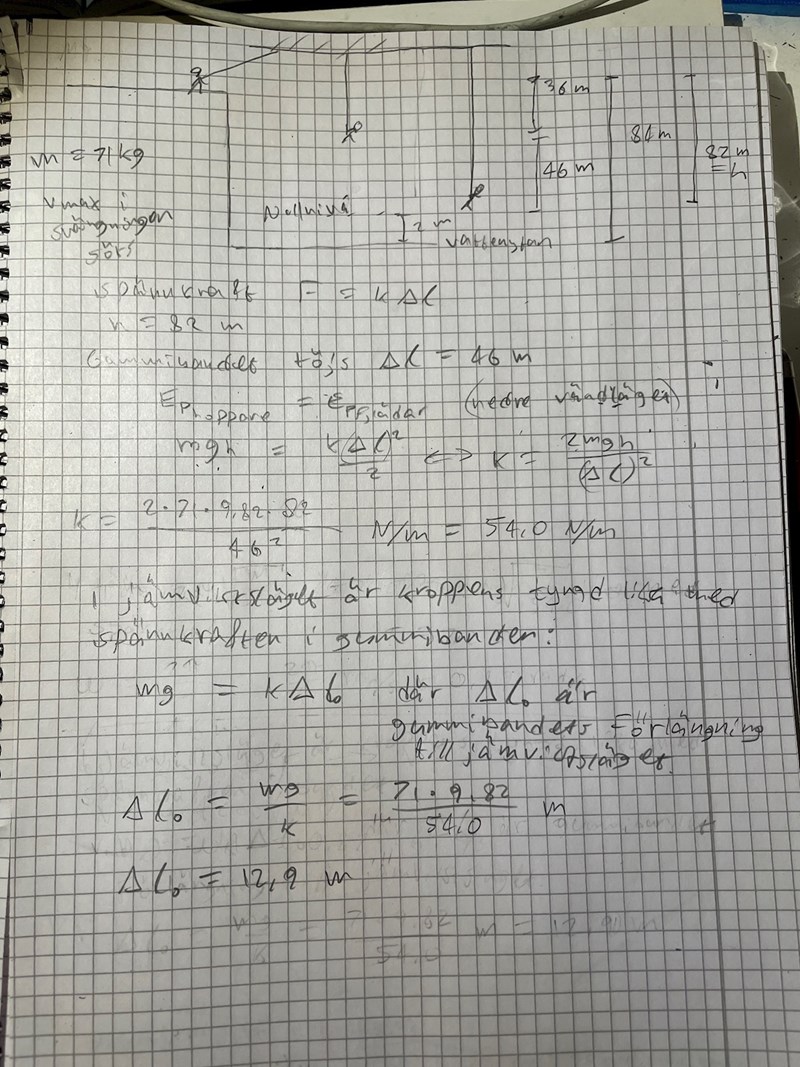 36 m
84 m
m = 71 kg
46 m
82 m
= h
vmax i
svängningen
sörs
Nollnivå
2 m
vattenytan
spännkraft F = k Δl
h = 82 m
Gummibandet töjs Δl = 46 m
Ephoppare = Epfjädar (nedre vändläget)
mgh = k(Δl)²/2 <=> k = 2mgh/(Δl)²
k = 2·71·9,82·82/46² N/m = 54,0 N/m
I jämviktsläget är kroppens tyngd lika med
spännkraften i gummibanden:
mg = kΔl₀ där Δl₀ är
gummibandets förlängning
till jämviktsläget.
Δl₀ = mg/k = 71·9,82/54,0 m
Δl₀ = 12,9 m